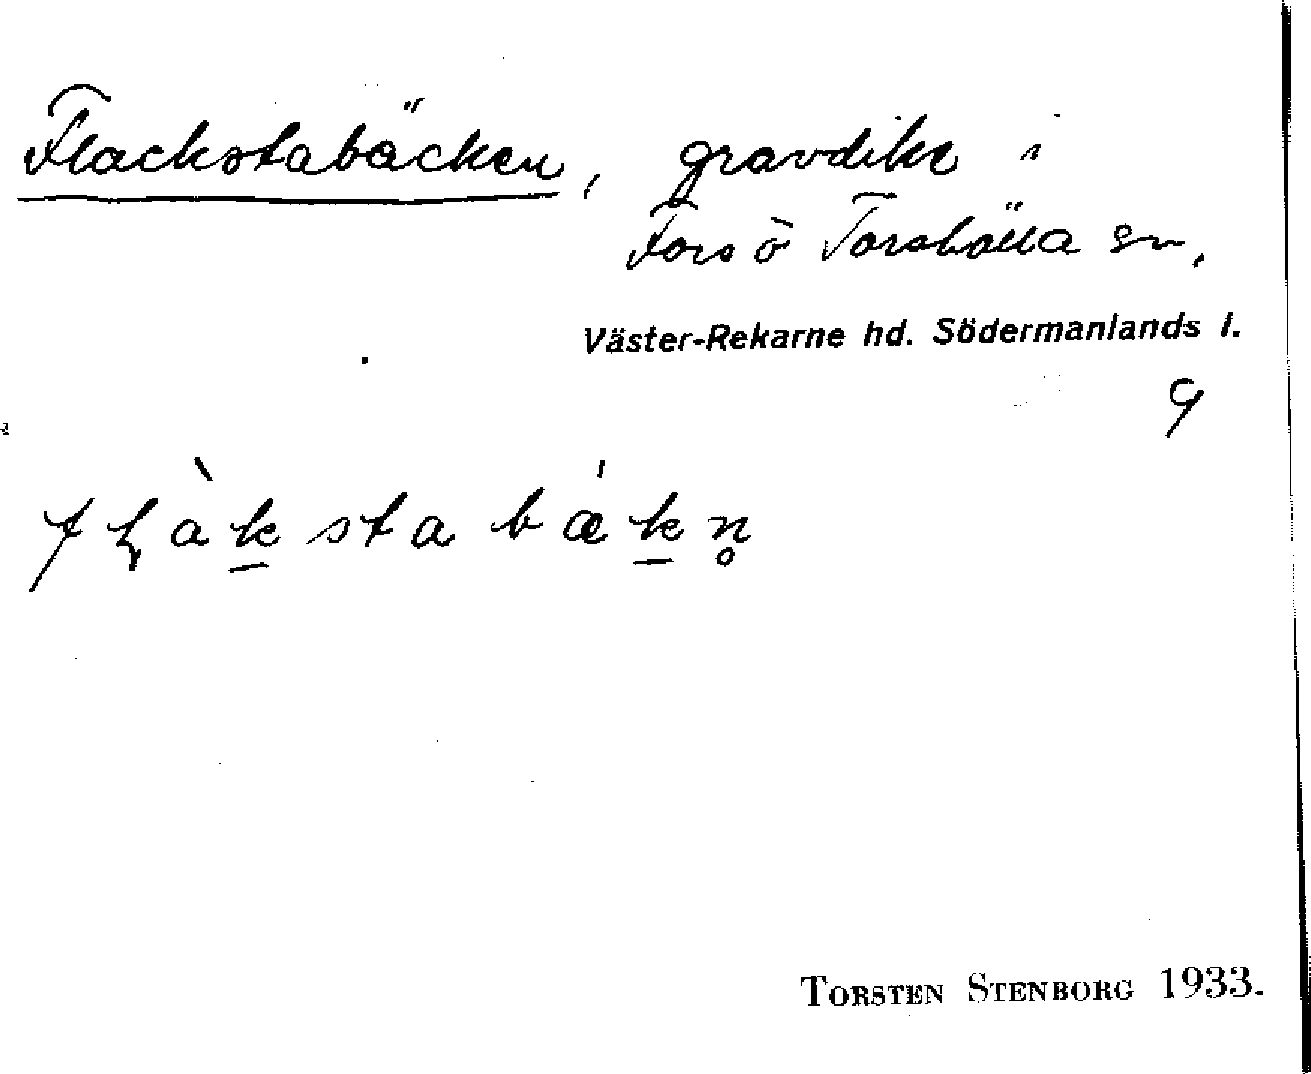 Flackstabäcken, gravdike i
Fors o Torshälla sn,
Väster-Rekarne hd. Södermanlands l.
9
fḷàkstabǽkn̥
TORSTEN STENBORG 1933.